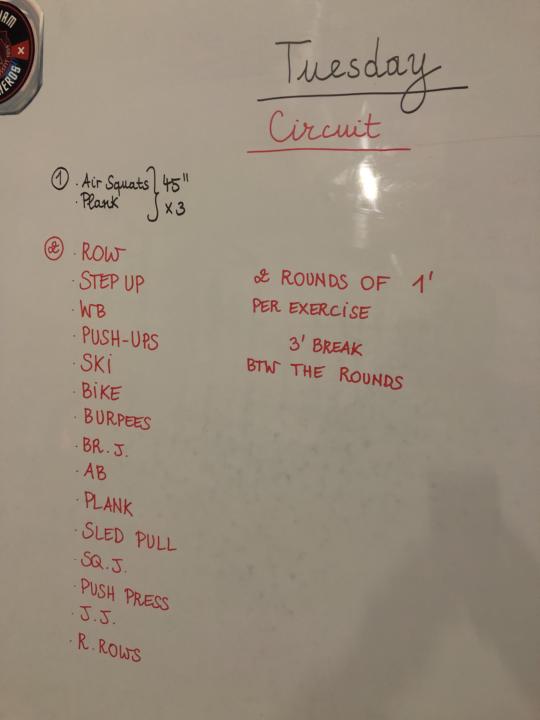 Tuesday
Circuit
① · Air Squats } 45"
· Plank x3
② · ROW
· STEP UP
· WB
· PUSH-UPS
· SKi
· BiKE
· BURPEES
· BR. J.
· AB
· PLANK
· SLED PULL
· SQ. J.
· PUSH PRESS
· J. J.
· R. ROWS
2 ROUNDS OF 1'
PER EXERCiSE
3' BREAK
BTW THE ROUNDS